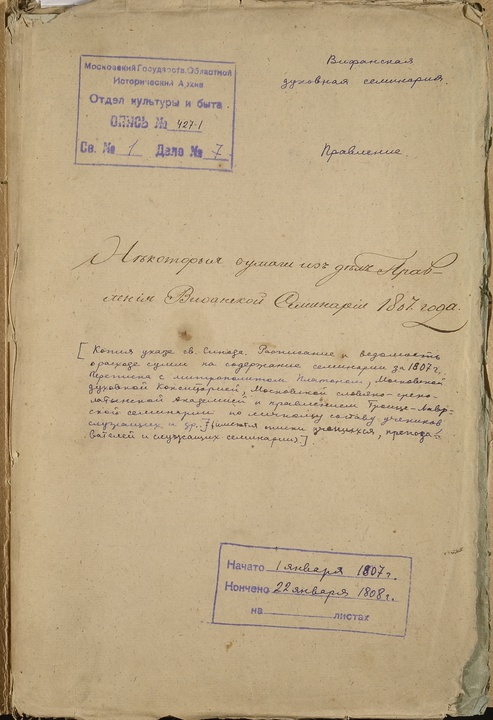 Московский Государств. Областной
Исторический Архив
Отдел культуры и быта
ОПИСЬ № 427.1
Св. № 1 Дело № 7
Вифанская
духовная семинария.
Правление
Нѣкоторыя бумаги изъ дѣлъ Прав-
ленія Виѳанской Семинаріи 1807 года.
[Копия указа св. Синода. Расписание и ведомость
о расходе сумм на содержание семинарии за 1807 г.
Переписка с митрополитом Платоном, Московской
духовной Консисторией, Московской славяно-греко-
латинской Академией и правлением Троице-Лавр-
ской семинарии по личному составу учеников
служащих и др.] (имеются списки учащихся, препода-
вателей и служащих семинарии).]
Начато 1 января 1807 г.
Кончено 22 января 1808 г.
на листах